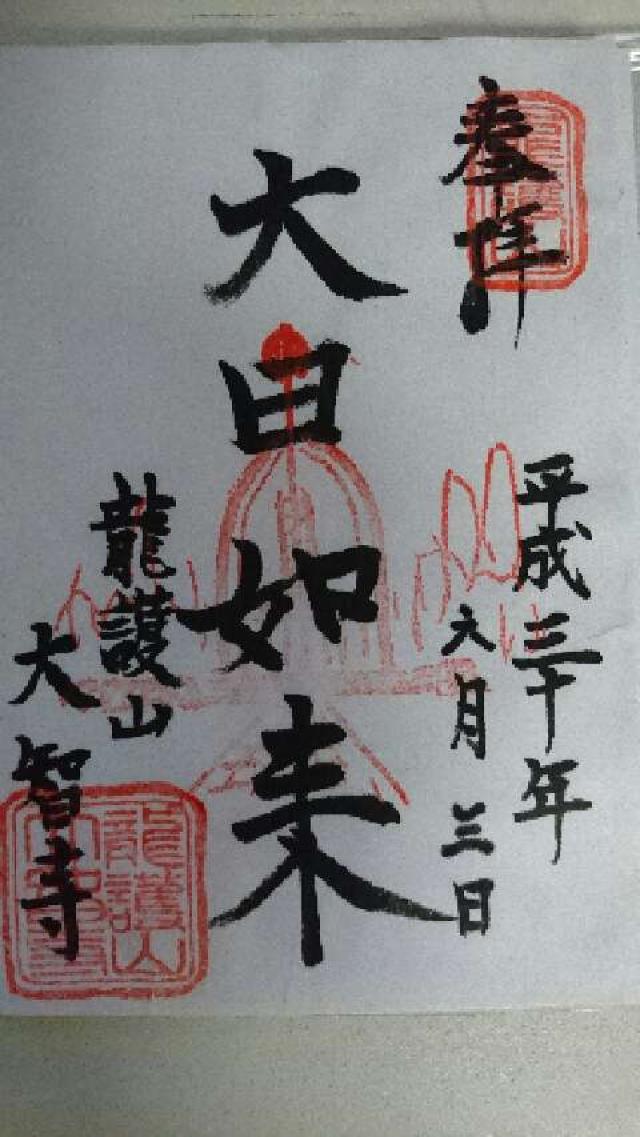 奉拝
平成三十年
六月三日
大日如来
龍護山
大智寺
龍護山